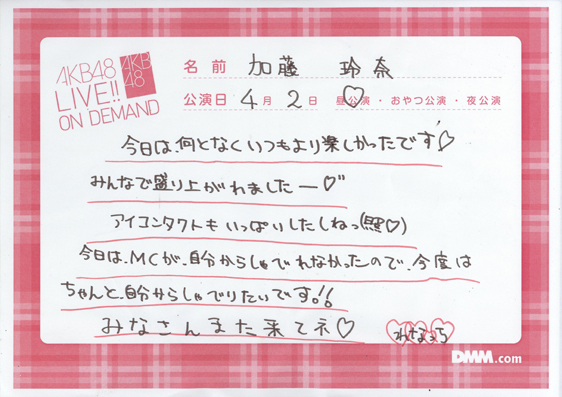 AKB48
LIVE!!
ON DEMAND
AKB
48
名前 加藤 玲奈
公演日 4月2日 昼公演・おやつ公演・夜公演
今日は、何となくいつもより楽しかったです♡
みんなで盛り上がれましたー♡
アイコンタクトもいっぱいしたしねっ(照♡)
今日は、MCが、自分からしゃべれなかったので、今度は
ちゃんと、自分からしゃべりたいです!!
みなさんまた来てネ♡
れなっち
DMM.com